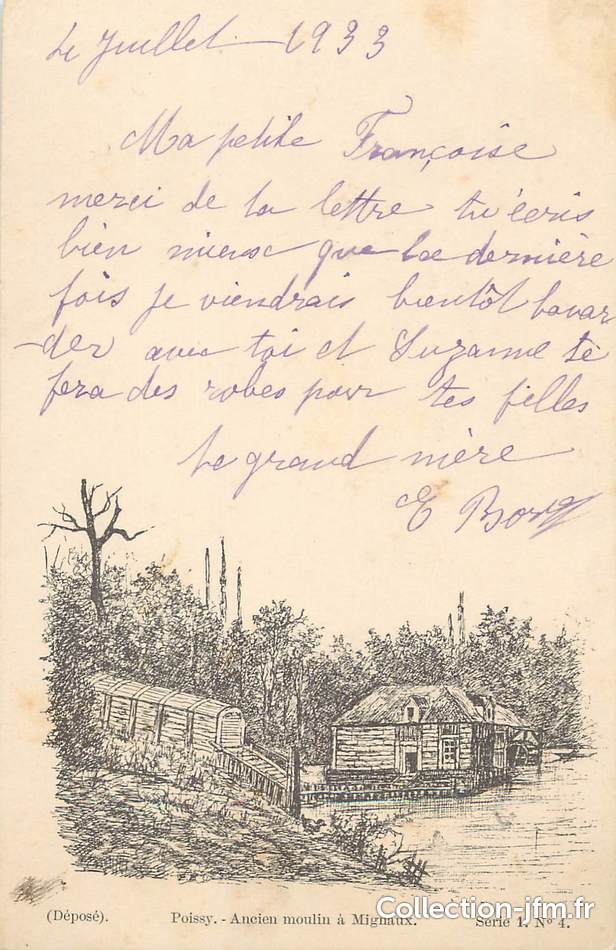 4 Juillet 1933
Ma petite Françoise
merci de ta lettre tu écris
bien mieux que la dernière
fois je viendrais bientôt bavar
-der avec toi et Suzanne te
fera des robes pour tes filles
Te grand mère
E
(Déposé). Poissy. - Ancien moulin à Mignaux. Série 1. Nº 4.
Collection-jfm.fr